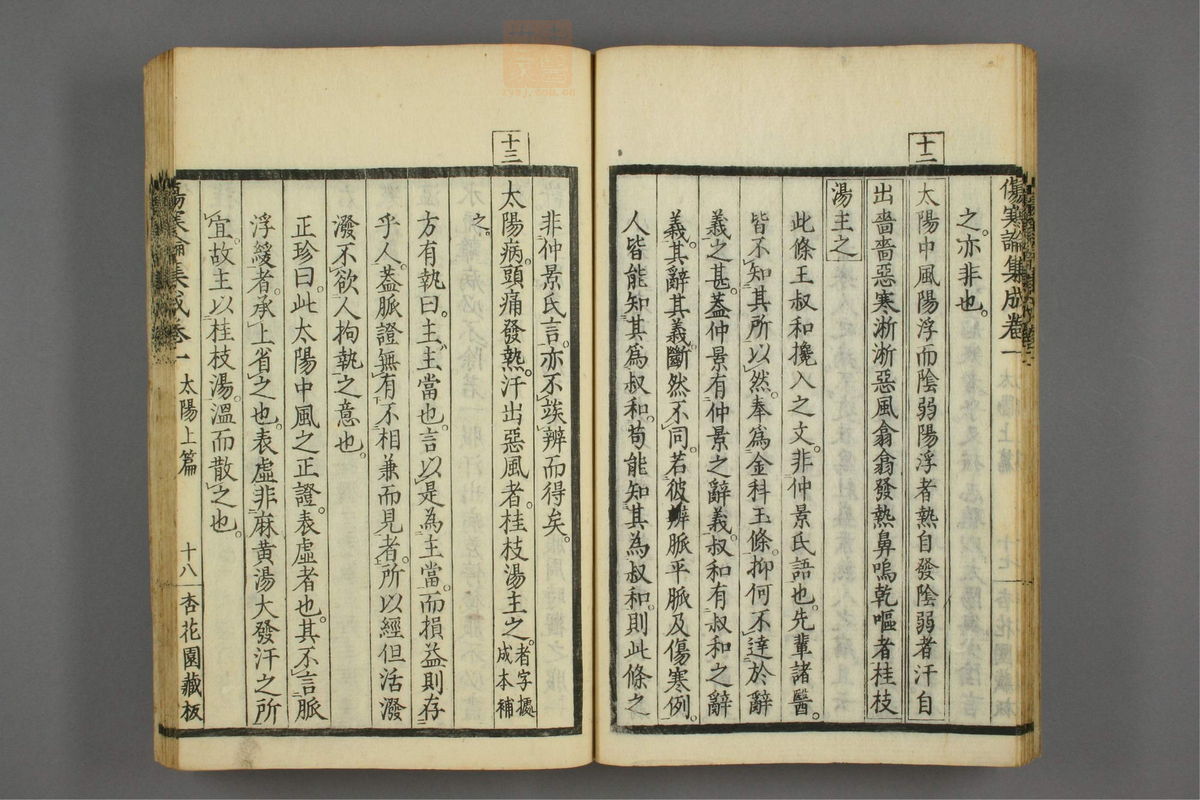 十二
之。亦非也。
太陽中風陽浮而陰弱陽浮者熱自發陰弱者汗自
出嗇嗇惡寒淅淅惡風翕翕發熱鼻鳴乾嘔者桂枝
湯主之
此條王叔和攙入之文。非仲景氏語也。先輩諸醫。
皆不知其所以然。奉爲金科玉條。抑何不達於辭
義之甚。葢仲景有仲景之辭義。叔和有叔和之辭
義。其辭其義。斷然不同。若彼辨脈平脈及傷寒例。
人皆能知其爲叔和。苟能知其為叔和。則此條之
傷寒論集成卷一
十三
非仲景氏言。亦不竢辨而得矣。
太陽病。頭痛發熱。汗出惡風者。桂枝湯主之。者字據成本補
之。
方有執曰。主、主當也。言以是為主當。而損益則存
乎人。葢脈證無有不相兼而見者。所以經但活潑
潑不欲人拘執之意也。
正珍曰。此太陽中風之正證。表虛者也。其不言脈
浮緩者。承上省之也。表虛非麻黄湯大發汗之所
宜。故主以桂枝湯。溫而散之也。
傷寒論集成卷一 太陽上篇 十八 杏花園藏板